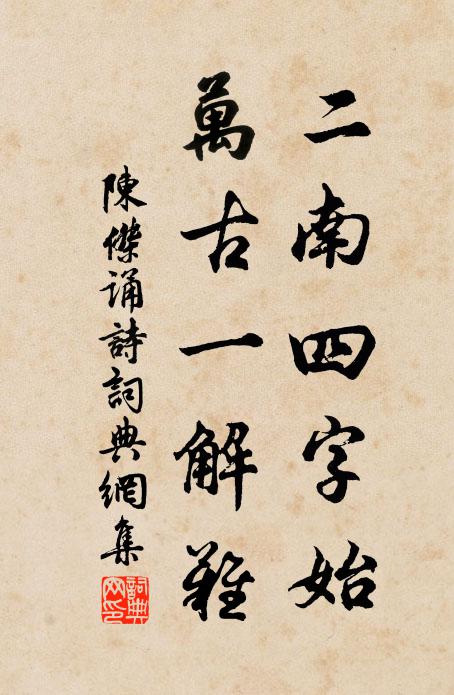 二南四字始
萬古一解難
陳傑誦詩詞典網集
詞典